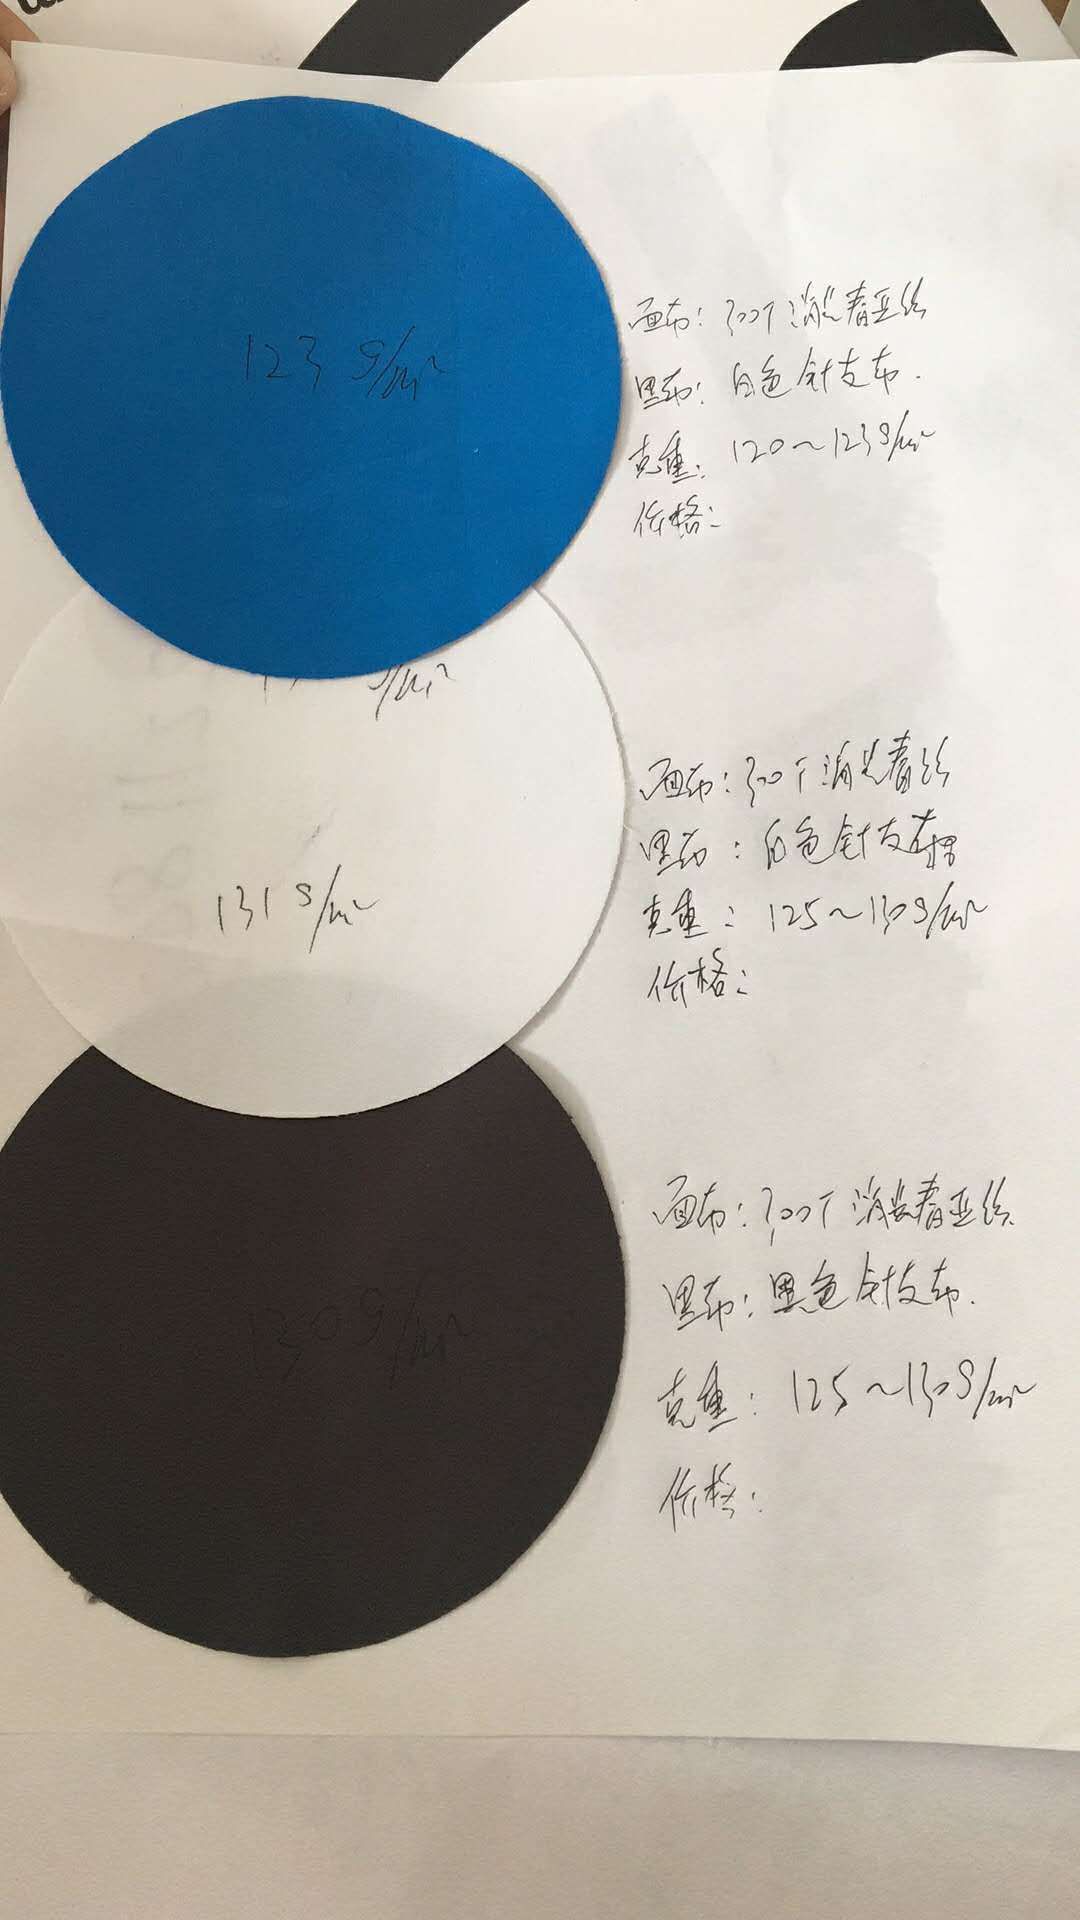 123 g/m²
面布：300T消光春亚纺
里布：白色针支布.
克重：120～123g/m²
价格：
g/m²
131 g/m²
面布：300T消光春纺
里布：白色针支布
克重：125～130g/m²
价格：
130g/m²
面布：300T消光春亚纺
里布：黑色针支布.
克重：125～130g/m²
价格：